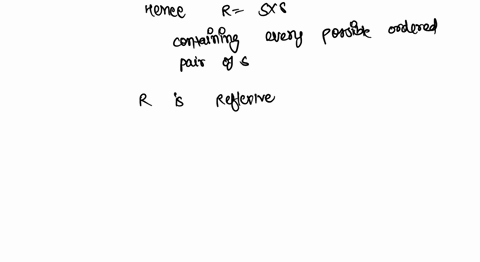 Hence R = S×S
containing every possible ordered
pair of S
R is Reflexive